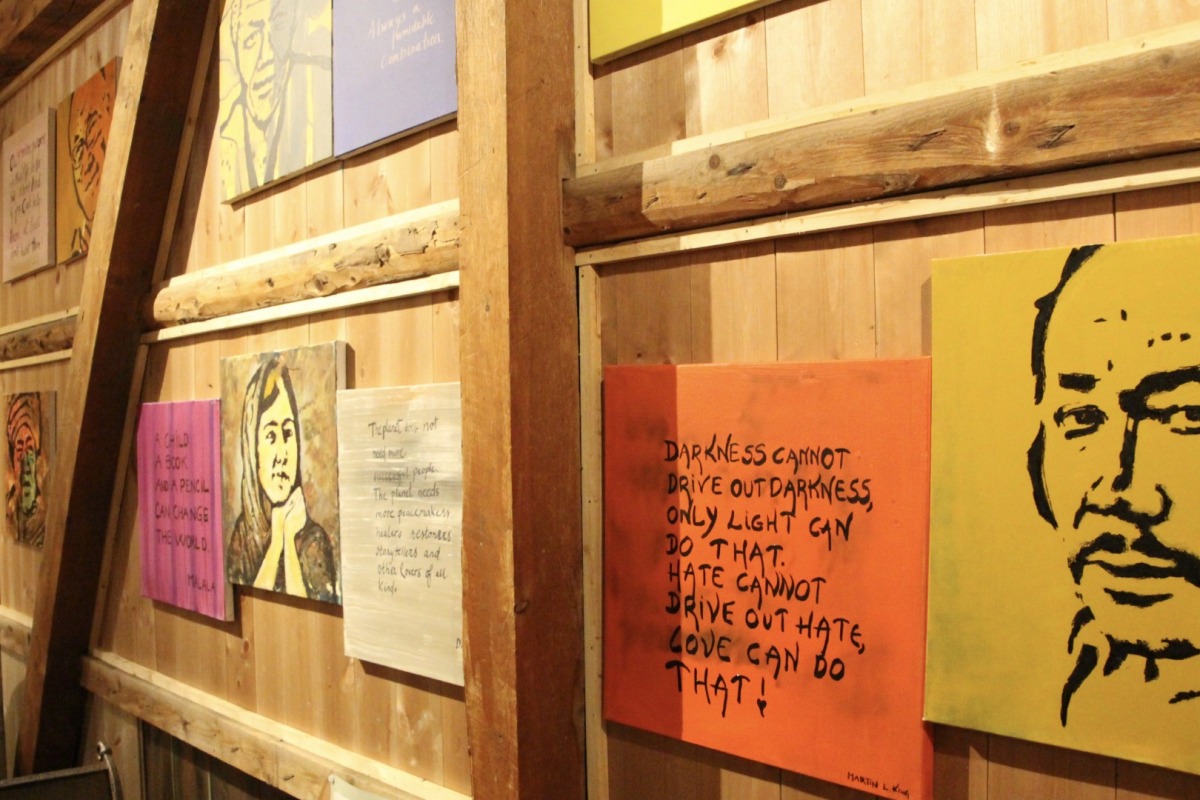 Always a
formidable
Combination
A CHILD
A BOOK
AND A PENCIL
CAN CHANGE
THE WORLD
MALALA
The planet does not
need more
successful people.
The planet needs
more peacemakers
healers restorers
storytellers and
other lovers of all
kind.
DARKNESS CANNOT
DRIVE OUT DARKNESS,
ONLY LIGHT CAN
DO THAT.
HATE CANNOT
DRIVE OUT HATE,
LOVE CAN DO
THAT!
MARTIN L. KING